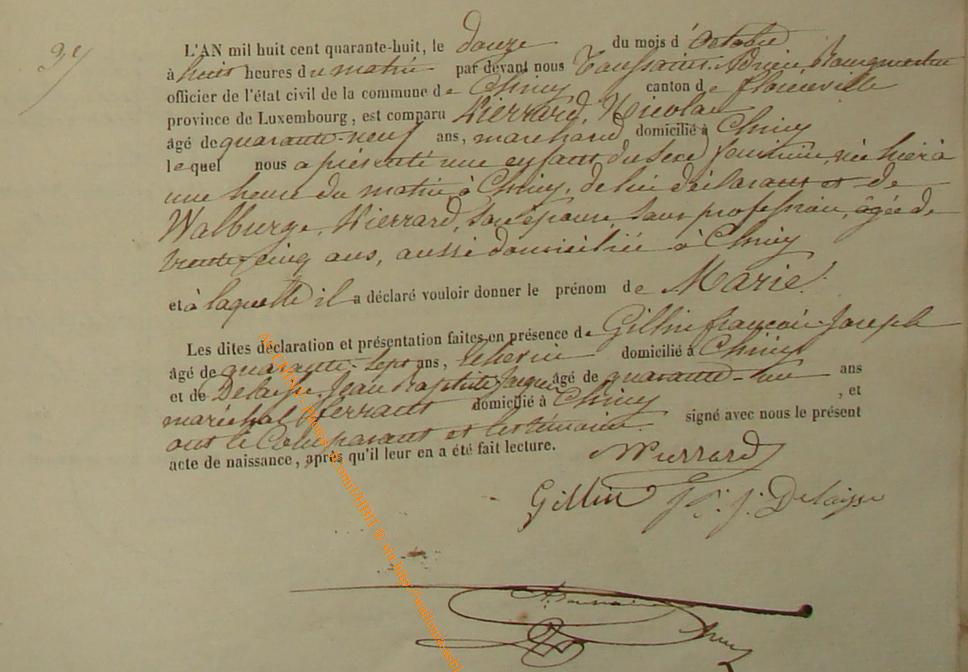 37
L'AN mil huit cent quarante-huit, le douze du mois d'Octobre
à huit heures du matin par devant nous Toussaint
officier de l'état civil de la commune de Chiny canton de Florenville
province de Luxembourg, est comparu Pierrard, Nicolas
âgé de quarante-neuf ans, marchand domicilié à Chiny
lequel nous a présenté une enfant du sexe féminin née hier à
une heure du matin à Chiny, de lui déclarant et de
Walburge, Pierrard, son épouse, sans profession, âgée de
trente-cinq ans, aussi domiciliée à Chiny
et à laquelle il a déclaré vouloir donner le prénom de Marie.
Les dites déclaration et présentation faites en présence de Gillin françois-Joseph
âgé de quarante-sept ans, domicilié à Chiny
et de Delaisse Jean Baptiste Jacques âgé de quarante-un ans
maréchal ferrant domicilié à Chiny , et
ont le Comparant et les témoins signé avec nous le présent
acte de naissance, après qu'il leur en a été fait lecture.
N Pierrard
Gillin J. j. Delaisse